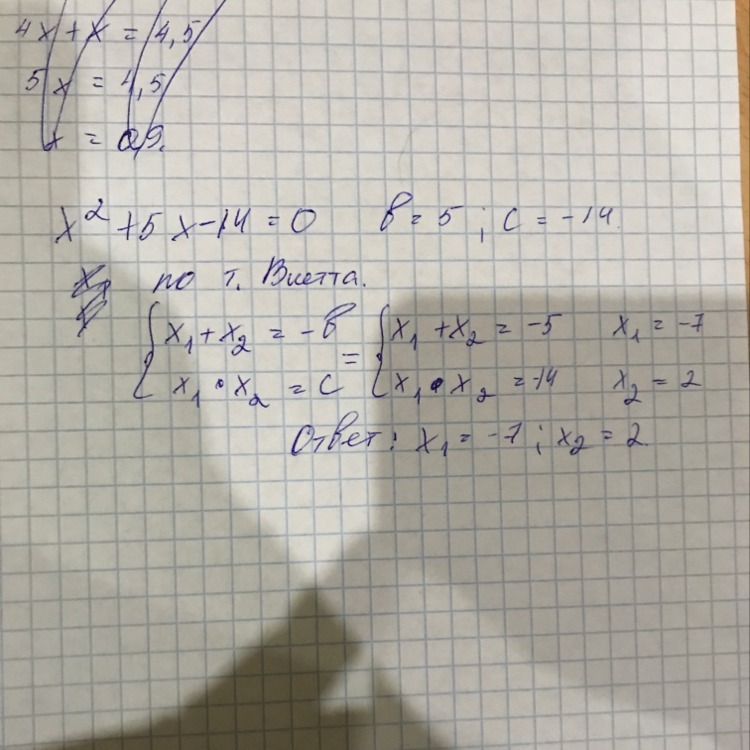 4x + x = 4,5
5x = 4,5
x = 0,9.
x² + 5x - 14 = 0 b = 5 ; c = -14.
по т. Виетта.
{ x₁ + x₂ = -b = { x₁ + x₂ = -5 x₁ = -7
x₁ • x₂ = c x₁ • x₂ = -14 x₂ = 2
Ответ: x₁ = -7 ; x₂ = 2.